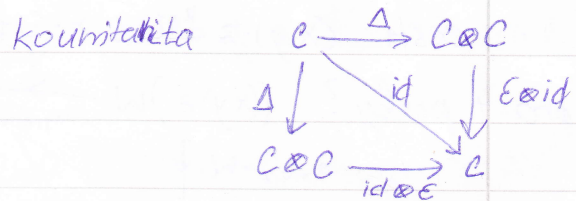 kounitarita C Δ C⊗C
Δ id ε⊗id
C⊗C id⊗ε C